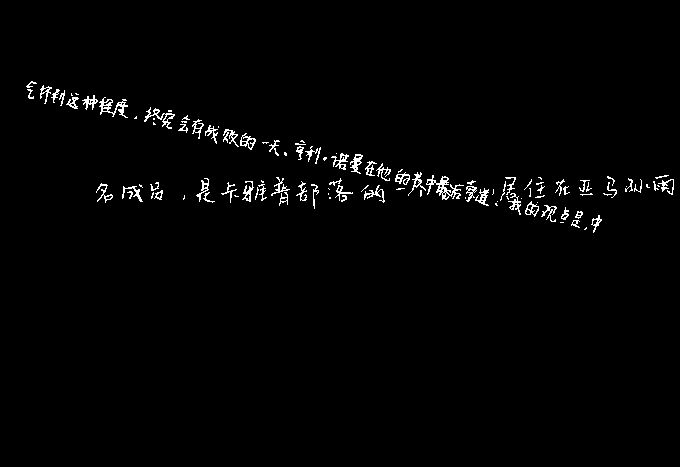 气坏到这种程度，终究会有战败的一天、亨利·诺曼在他的书中最后写道：“我的观点是，中
名成员，是卡雅普部落的一 居住在亚马孙雨